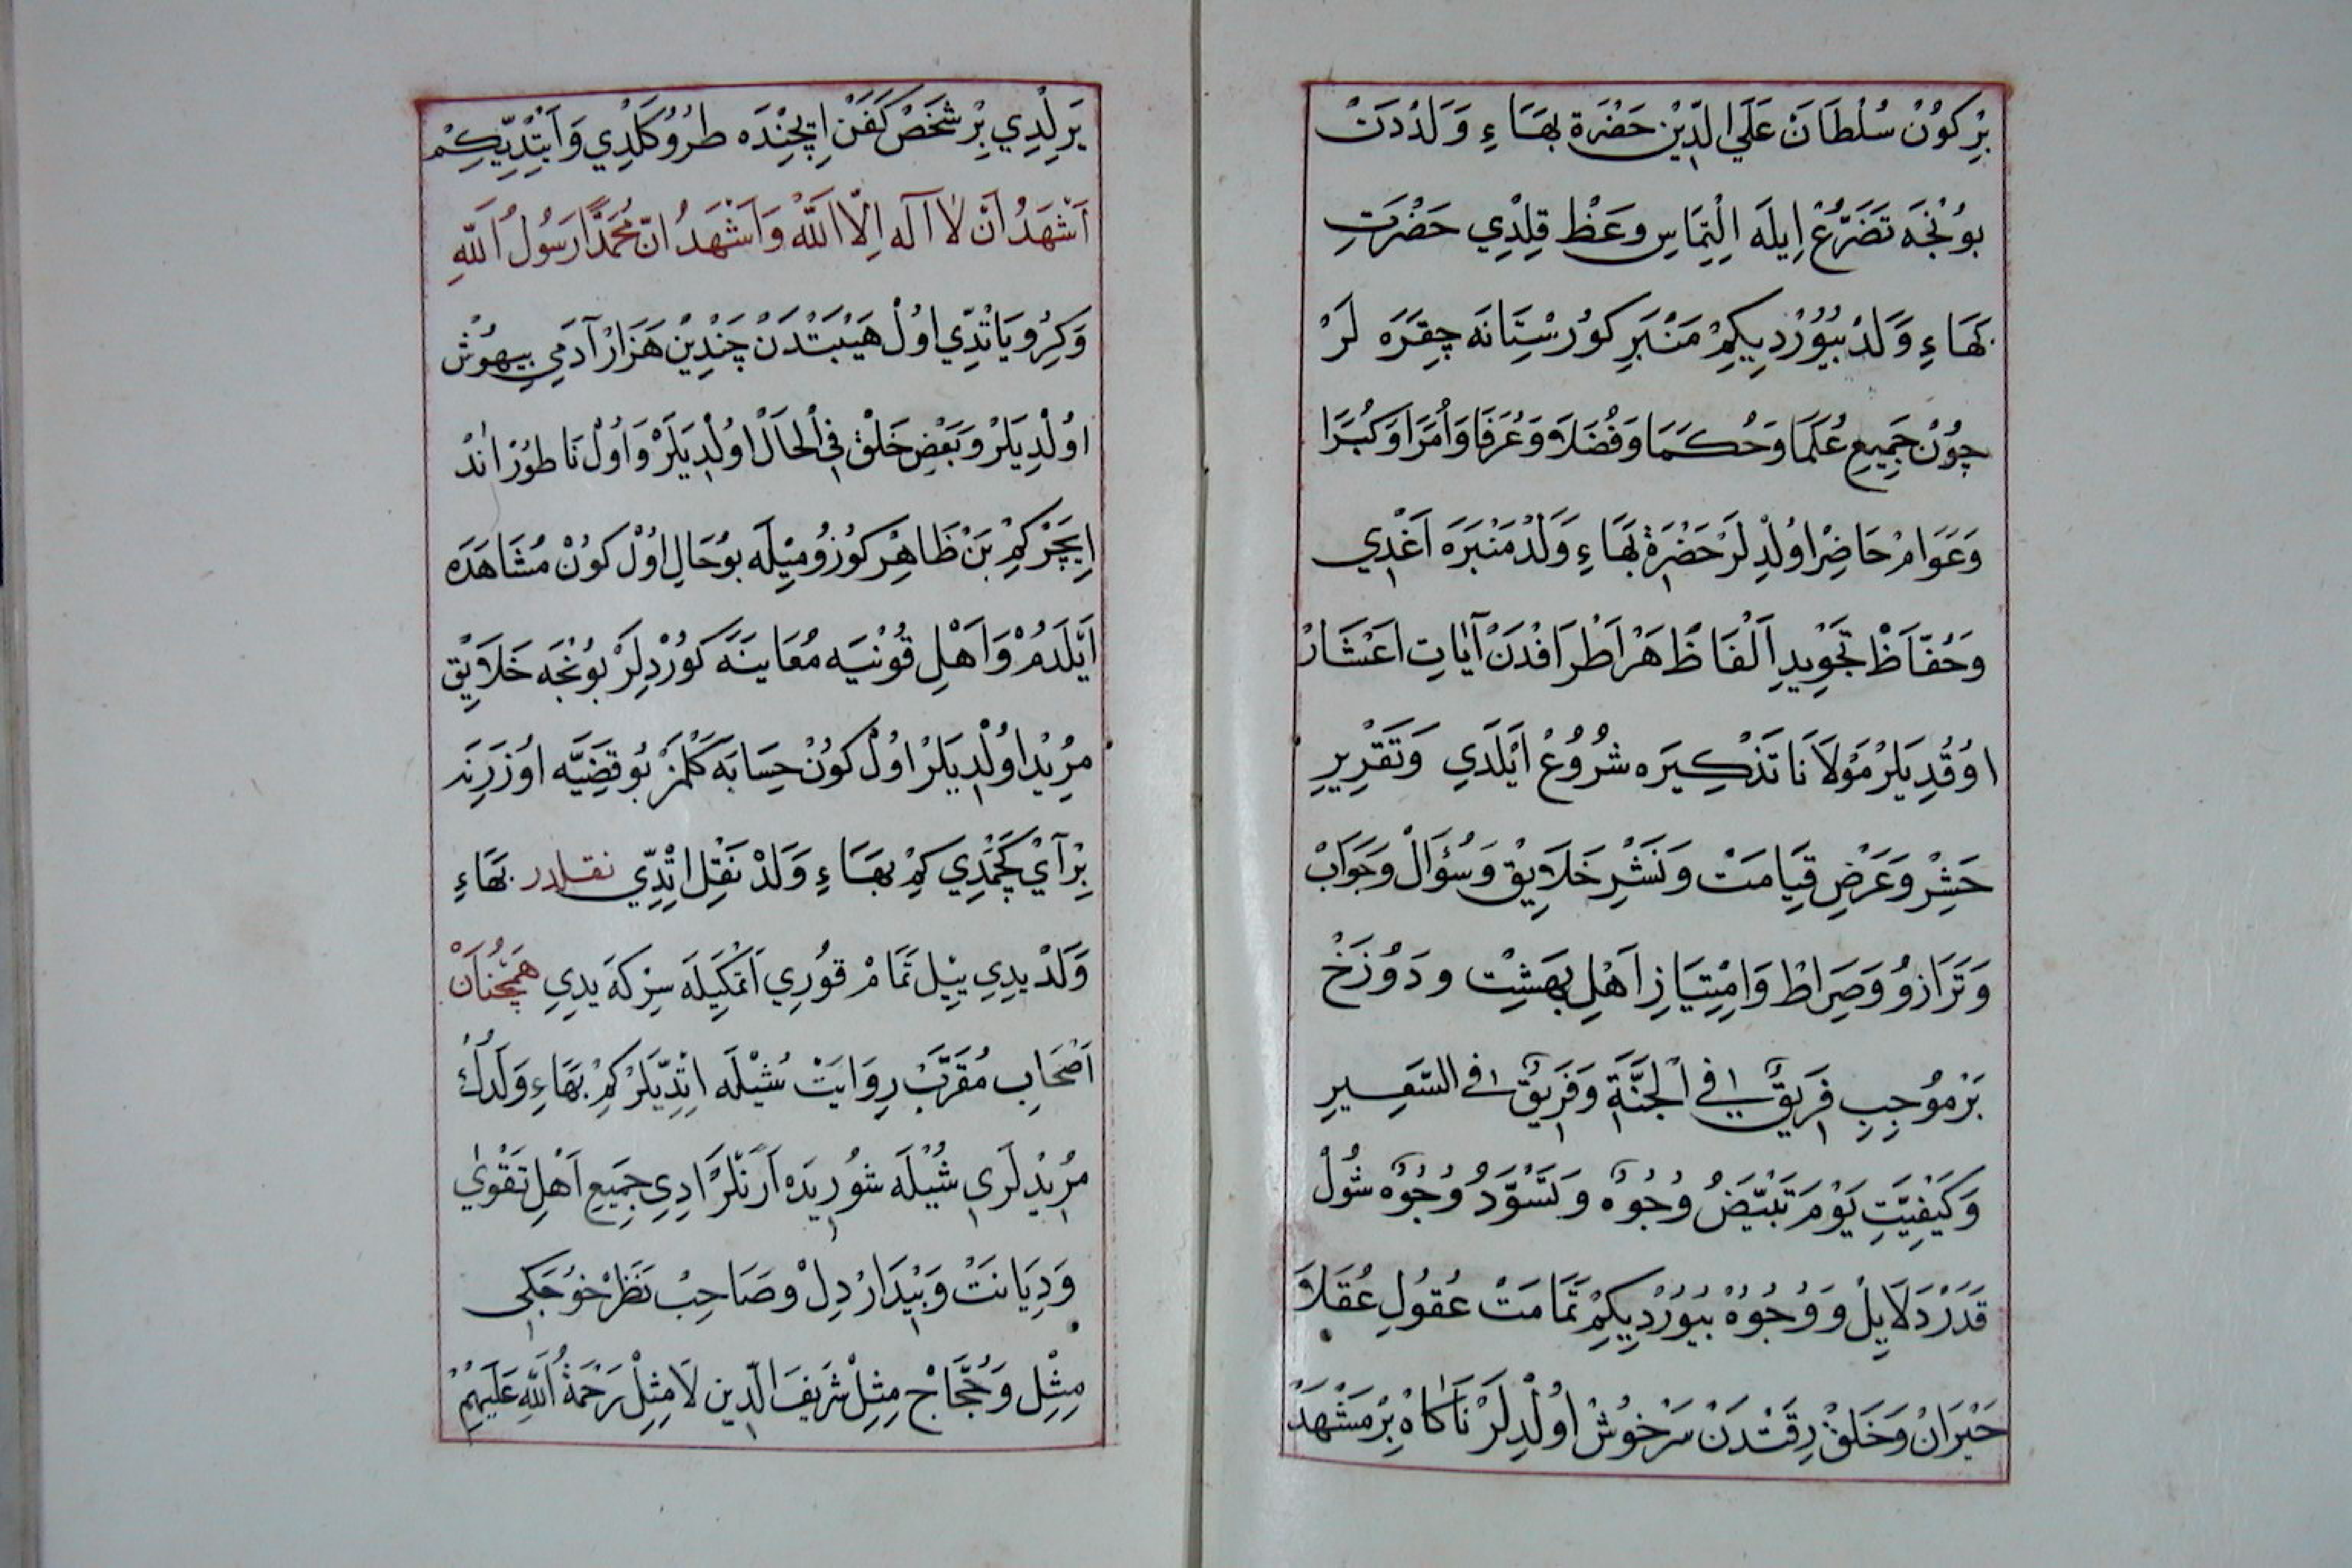 بِرْ كُونْ سُلْطَانْ عَلَي الدِّيْنْ حَضْرَةِ بَهَاءِ وَلَدْدَنْ
بُونْجَه تَضَرُّعْ اِيلَه اِلْتِمَاسِ وَعَظْ قِلْدِي حَضْرَتِ
بَهَاءِ وَلَدْ بُيُورْدِيكِمْ مَنْبَرِ كُورْسِتَانَه چِقَرَه لَرْ
چُونْ جَمِيعِ عُلَمَا وَحُكَمَا وَفُضَلَا وَعُرَفَا وَاُمَرَا وَكُبَرَا
وَعَوَامْ حَاضِرْ اُولْدِلَرْ حَضْرَةِ بَهَاءِ وَلَدْ مَنْبَرَه اَغْدِي
وَحُفَّاظْ تَجْوِيدِ اَلْفَاظْ هَرْ اَطْرَافْدَنْ آيَاتِ اَعْشَارْ
اُوقُدِيلَرْ مَوْلَانَا تَذْكِيرَه شُرُوعْ اَيْلَدِي وَتَقْرِيرِ
حَشِرْ وَعَرْضِ قِيَامَتْ وَنَشْرِ خَلَايِقْ وَسُؤَالْ وَجَوَابْ
وَتَرَازُو وَصِرَاطْ وَامْتِيَازِ اَهْلِ بَهَشِتْ وَدُوزَخْ
بَرْمُوجِبِ فَرِيقٌ فِي الْجَنَّةِ وَفَرِيقٌ فِي السَّعِيرِ
وَكَيْفِيَّتِ يَوْمَ تَبْيَضُّ وُجُوهٌ وَتَسْوَدُّ وُجُوهٌ شُولْ
قَدَرْ دَلَايِلْ وَوُجُوهْ بُيُورْدِيكِمْ تَمَامَتْ عُقُولِ عُقَلَا
حَيْرَانْ وَخَلَقْ رِقَتْدَنْ سَرْخُوشْ اُولْدِلَرْ نَاكَاهْ بِرْ مَشْهَدْ
يَرِلْدِي بِرْ شَخَصْ كَفَنْ اِيچِنْدَه طُرُو كَلْدِي وَاَيْتْدِيكِمْ
اَشْهَدُ اَنْ لَا اِلَهَ اِلَّا اللّٰهُ وَاَشْهَدُ اَنَّ مُحَمَّدًا رَسُولُ اللّٰهِ
وَكِرُو يَاتْدِي اُولْ هَيْبَتْدَنْ چَنْدِينْ هَزَارْ آدَمِي بِيهُوشْ
اُولْدِيلَرْ وَبَعْضِ خَلْقْ فِي الْحَالْ اُولْدِيلَرْ وَاُولْ نَاطُورْ اَنْدْ
اِيچَرْكِمْ بَنْ ظَاهِرْ كُوزُومِيلَه بُو حَالِ اُولْ كُونْ مُشَاهَدَه
اَيْلَدُمْ وَاَهْلِ قُونْيَه مُعَايَنَه كُورْدِلَرْ بُونْجَه خَلَايِقْ
مُرِيدْ اُولْدِيلَرْ اُولْ كُونْ حِسَابَه كَلْمَزْ بُو قَضِيَّه اُوزَرِنَه
بِرْ آيْ كَچْمَدِي كِمْ بَهَاءِ وَلَدْ نَقْلْ اِتْدِي نقلدر بَهَاءِ
وَلَدْ يِدِي يِيلْ تَمَامْ قُورِي اَتْمَكِيلَه سِرْكَه يَدِي هَمْچُنَانْ
اَصْحَابِ مُقَرَّبْ رِوَايَتْ شُيْلَه اِتْدِيلَرْ كِمْ بَهَاءِ وَلَدُكْ
مُرِيدْلَرِي شُيْلَه شُورِيدَه اَرَنْلَرْادِي جَمِيعِ اَهْلِ تَقْوٰي
وَدِيَانَتْ وَبِيدَارْ دِلْ وَصَاحِبْ نَظَرْ خُوجَكِي
مِثْلْ وَحُجَّاجْ مِثْلْ شَرِيفَ الدِّينْ لَا مِثْلْ رَحْمَةُ اللّٰهِ عَلَيْهِمْ